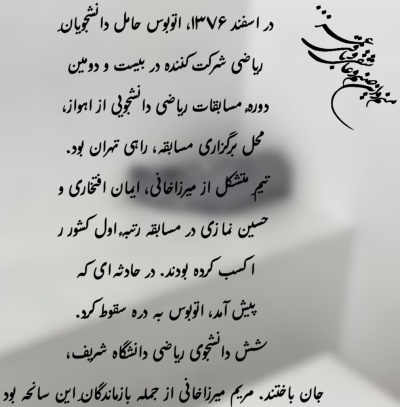 در اسفند ۱۳۷۶، اتوبوس حامل دانشجویان
ریاضی شرکت‌کننده در بیست و دومین
دوره مسابقات ریاضی دانشجویی از اهواز،
محل برگزاری مسابقه، راهی تهران بود.
تیم متشکل از میرزاخانی، ایمان افتخاری و
حسین نمازی در مسابقه رتبه اول کشور ر
ا کسب کرده بودند. در حادثه ای که
پیش آمد، اتوبوس به دره سقوط کرد.
شش دانشجوی ریاضی دانشگاه شریف،
جان باختند. مریم میرزاخانی از جمله بازماندگان این سانحه بود